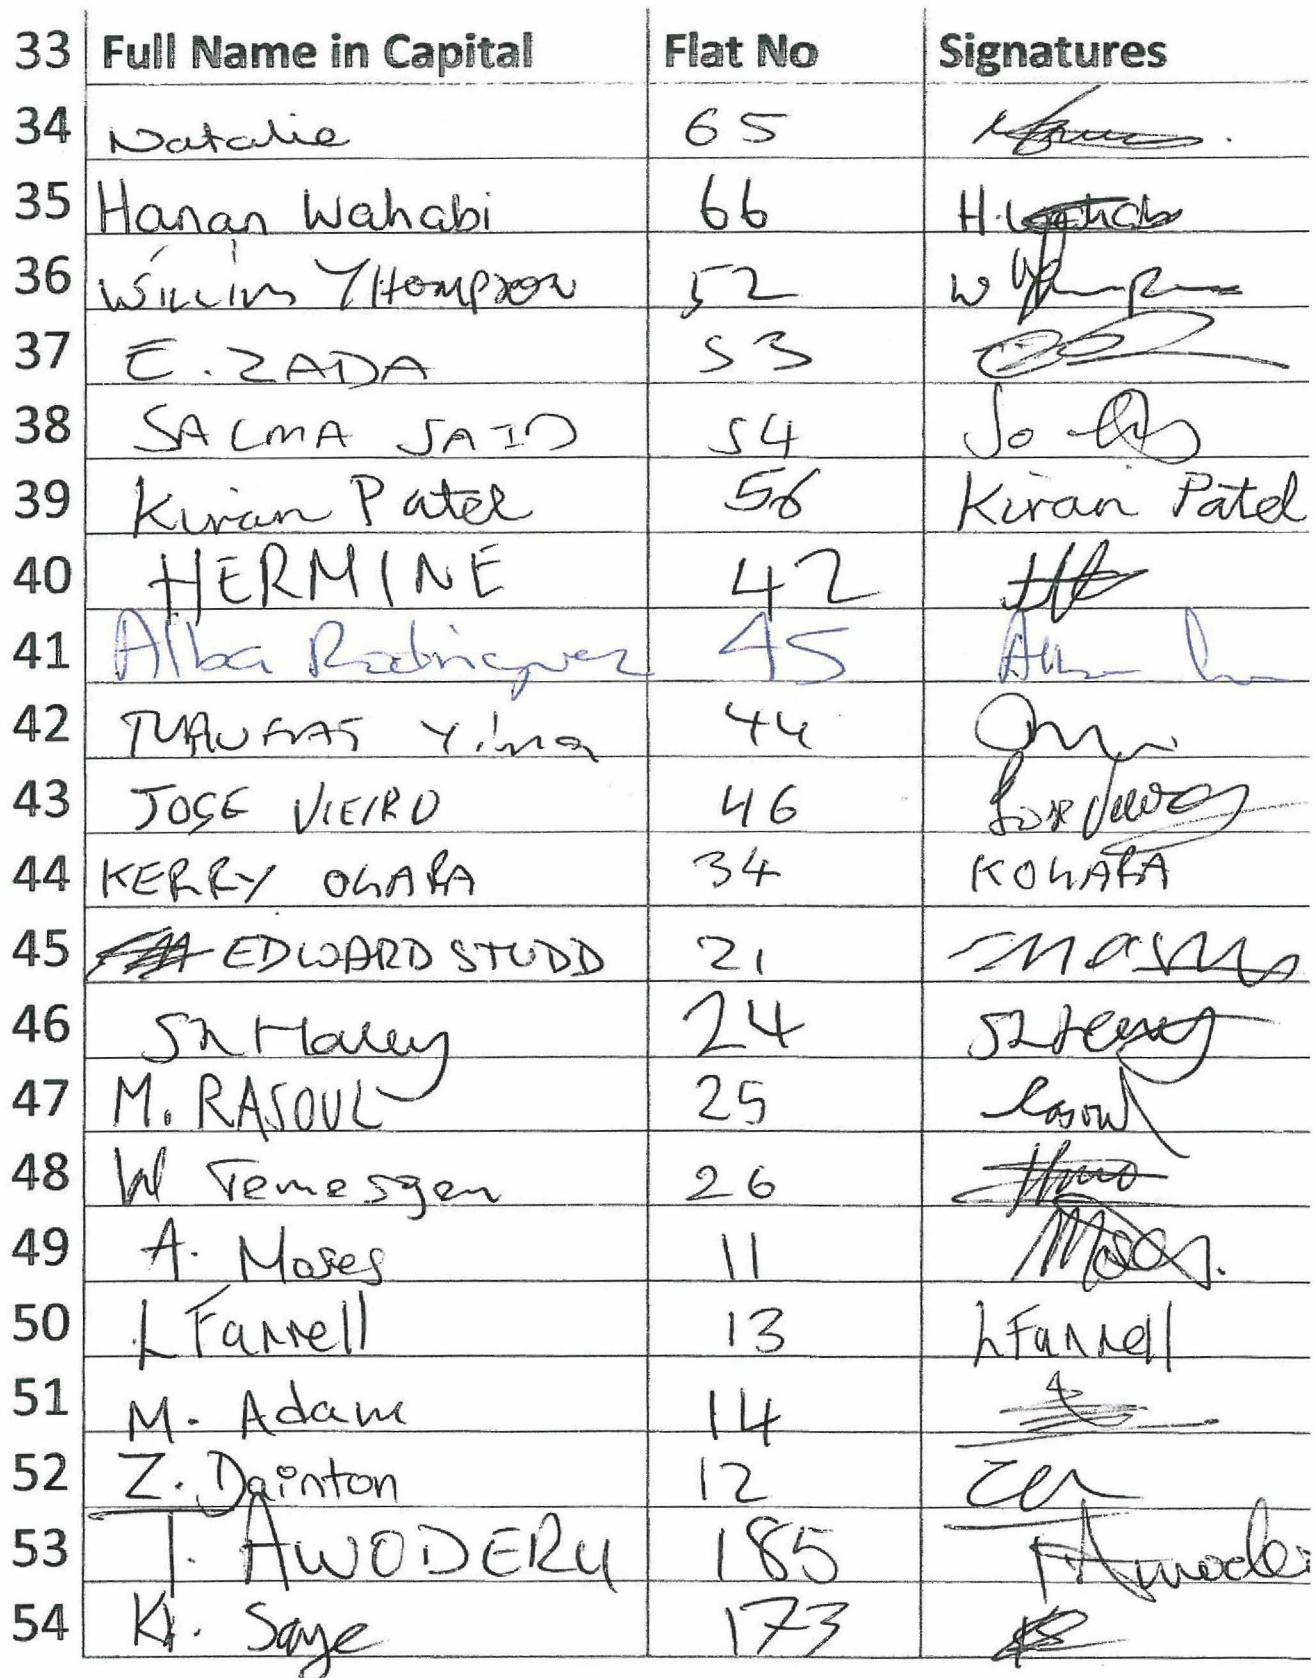 33 Full Name in Capital Flat No Signatures
34 Natalie 65
35 Hanan Wahabi 66 H.Wahabi
36 Willim Thompson 52 W Thompson
37 E. ZADA 53
38 SALMA SAID 54
39 Kiran Patel 56 Kiran Patel
40 HERMINE 42
41 Alba Rodriguez 45
42 Yima 44
43 JOSE VIEIRO 46
44 KERRY OHARA 34 KOHARA
45 EDWARD STUDD 21
46 24
47 M. RASOUL 25 Rasoul
48 W Temesgen 26
49 A. Moses 11 Moses.
50 L Farrell 13 L Farrell
51 M. Adam 14
52 Z. Dainton 12
53 T. AWODERU 185
54 K. Saye 173